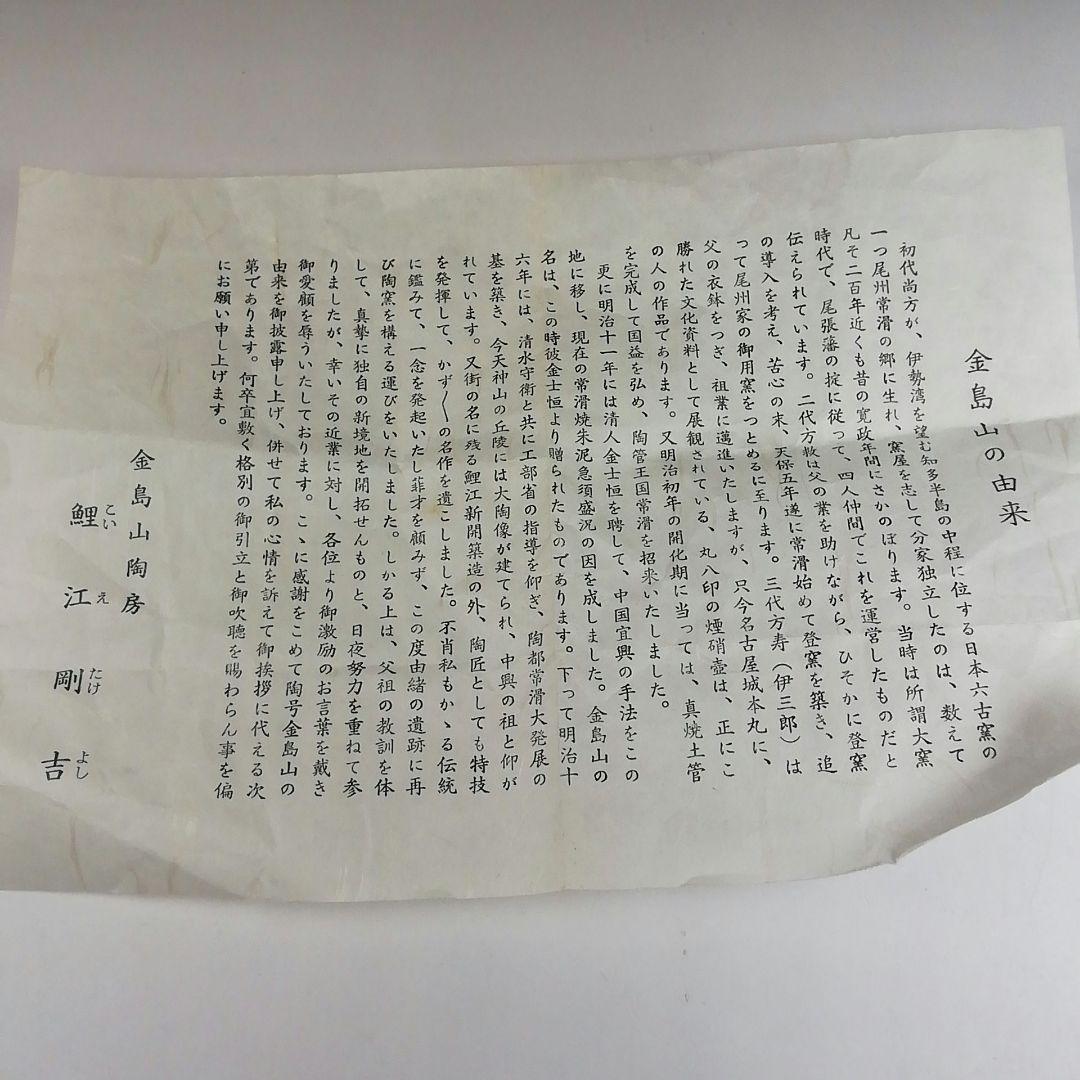 金島山の由来
初代尚方が、伊勢湾を望む知多半島の中程に位する日本六古窯の
一つ尾州常滑の郷に生れ、窯屋を志して分家独立したのは、数えて
凡そ二百年近くも昔の寛政年間にさかのぼります。当時は所謂大窯
時代で、尾張藩の掟に従って、四人仲間でこれを運営したものだと
伝えられています。二代方救は父の業を助けながら、ひそかに登窯
の導入を考え、苦心の末、天保五年遂に常滑始めて登窯を築き、追
って尾州家の御用窯をつとめるに至ります。三代方寿（伊三郎）は
父の衣鉢をつぎ、祖業に邁進いたしますが、只今名古屋城本丸に、
勝れた文化資料として展観されている、丸八印の煙硝壺は、正にこ
の人の作品であります。又明治初年の開化期に当っては、真焼土管
を完成して国益を弘め、陶管王国常滑を招来いたしました。
更に明治十一年には清人金士恒を聘して、中国宜興の手法をこの
地に移し、現在の常滑焼朱泥急須盛況の因を成しました。金島山の
名は、この時彼金士恒より贈られたものであります。下って明治十
六年には、清水守衛と共に工部省の指導を仰ぎ、陶都常滑大発展の
基を築き、今天神山の丘陵には大陶像が建てられ、中興の祖と仰が
れています。又街の名に残る鯉江新開築造の外、陶匠としても特技
を発揮して、かず〳〵の名作を遺こしました。不肖私もかゝる伝統
に鑑みて、一念を発起いたし菲才を顧みず、この度由緒の遺跡に再
び陶窯を構える運びをいたしました。しかる上は、父祖の教訓を体
して、真摯に独自の新境地を開拓せんものと、日夜努力を重ねて参
りましたが、幸いその近業に対し、各位より御激励のお言葉を戴き
御愛顧を辱ういたしております。こゝに感謝をこめて陶号金島山の
由来を御披露申し上げ、併せて私の心情を訴えて御挨拶に代える次
第であります。何卒宜敷く格別の御引立と御吹聴を賜わらん事を偏
にお願い申し上げます。
金島山陶房
鯉江剛吉
こい え たけ よし